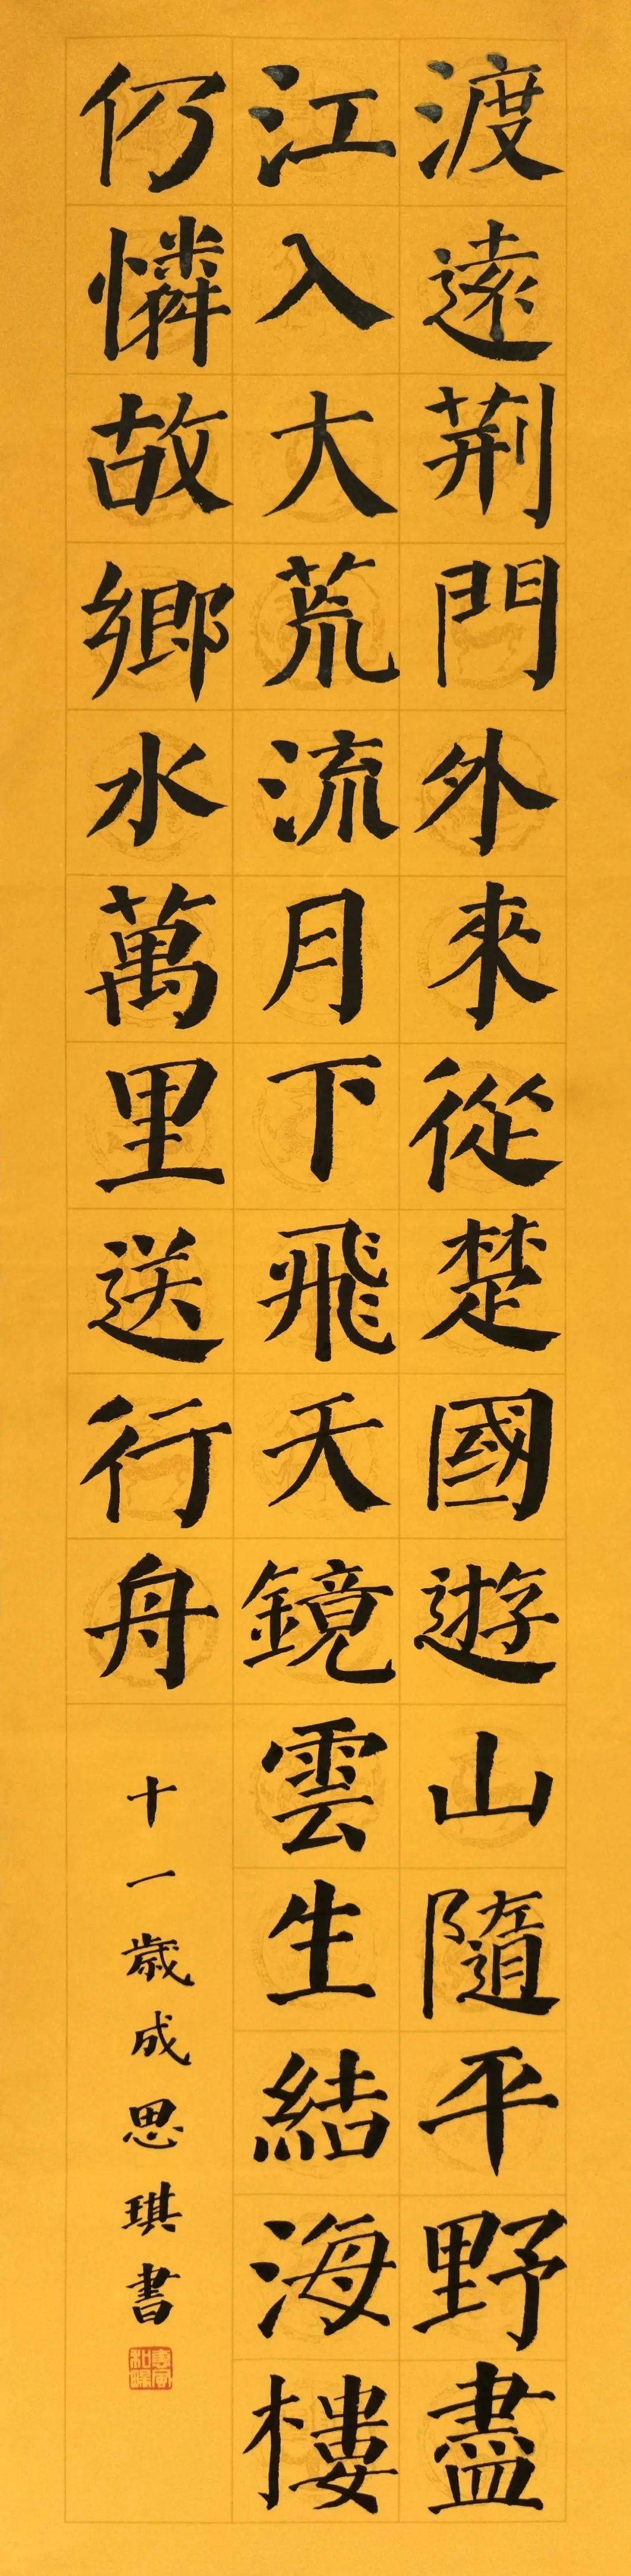 渡遠荆門外來從楚國遊山隨平野盡
江入大荒流月下飛天鏡雲生結海樓
仍憐故鄉水萬里送行舟
十一歲成思琪書